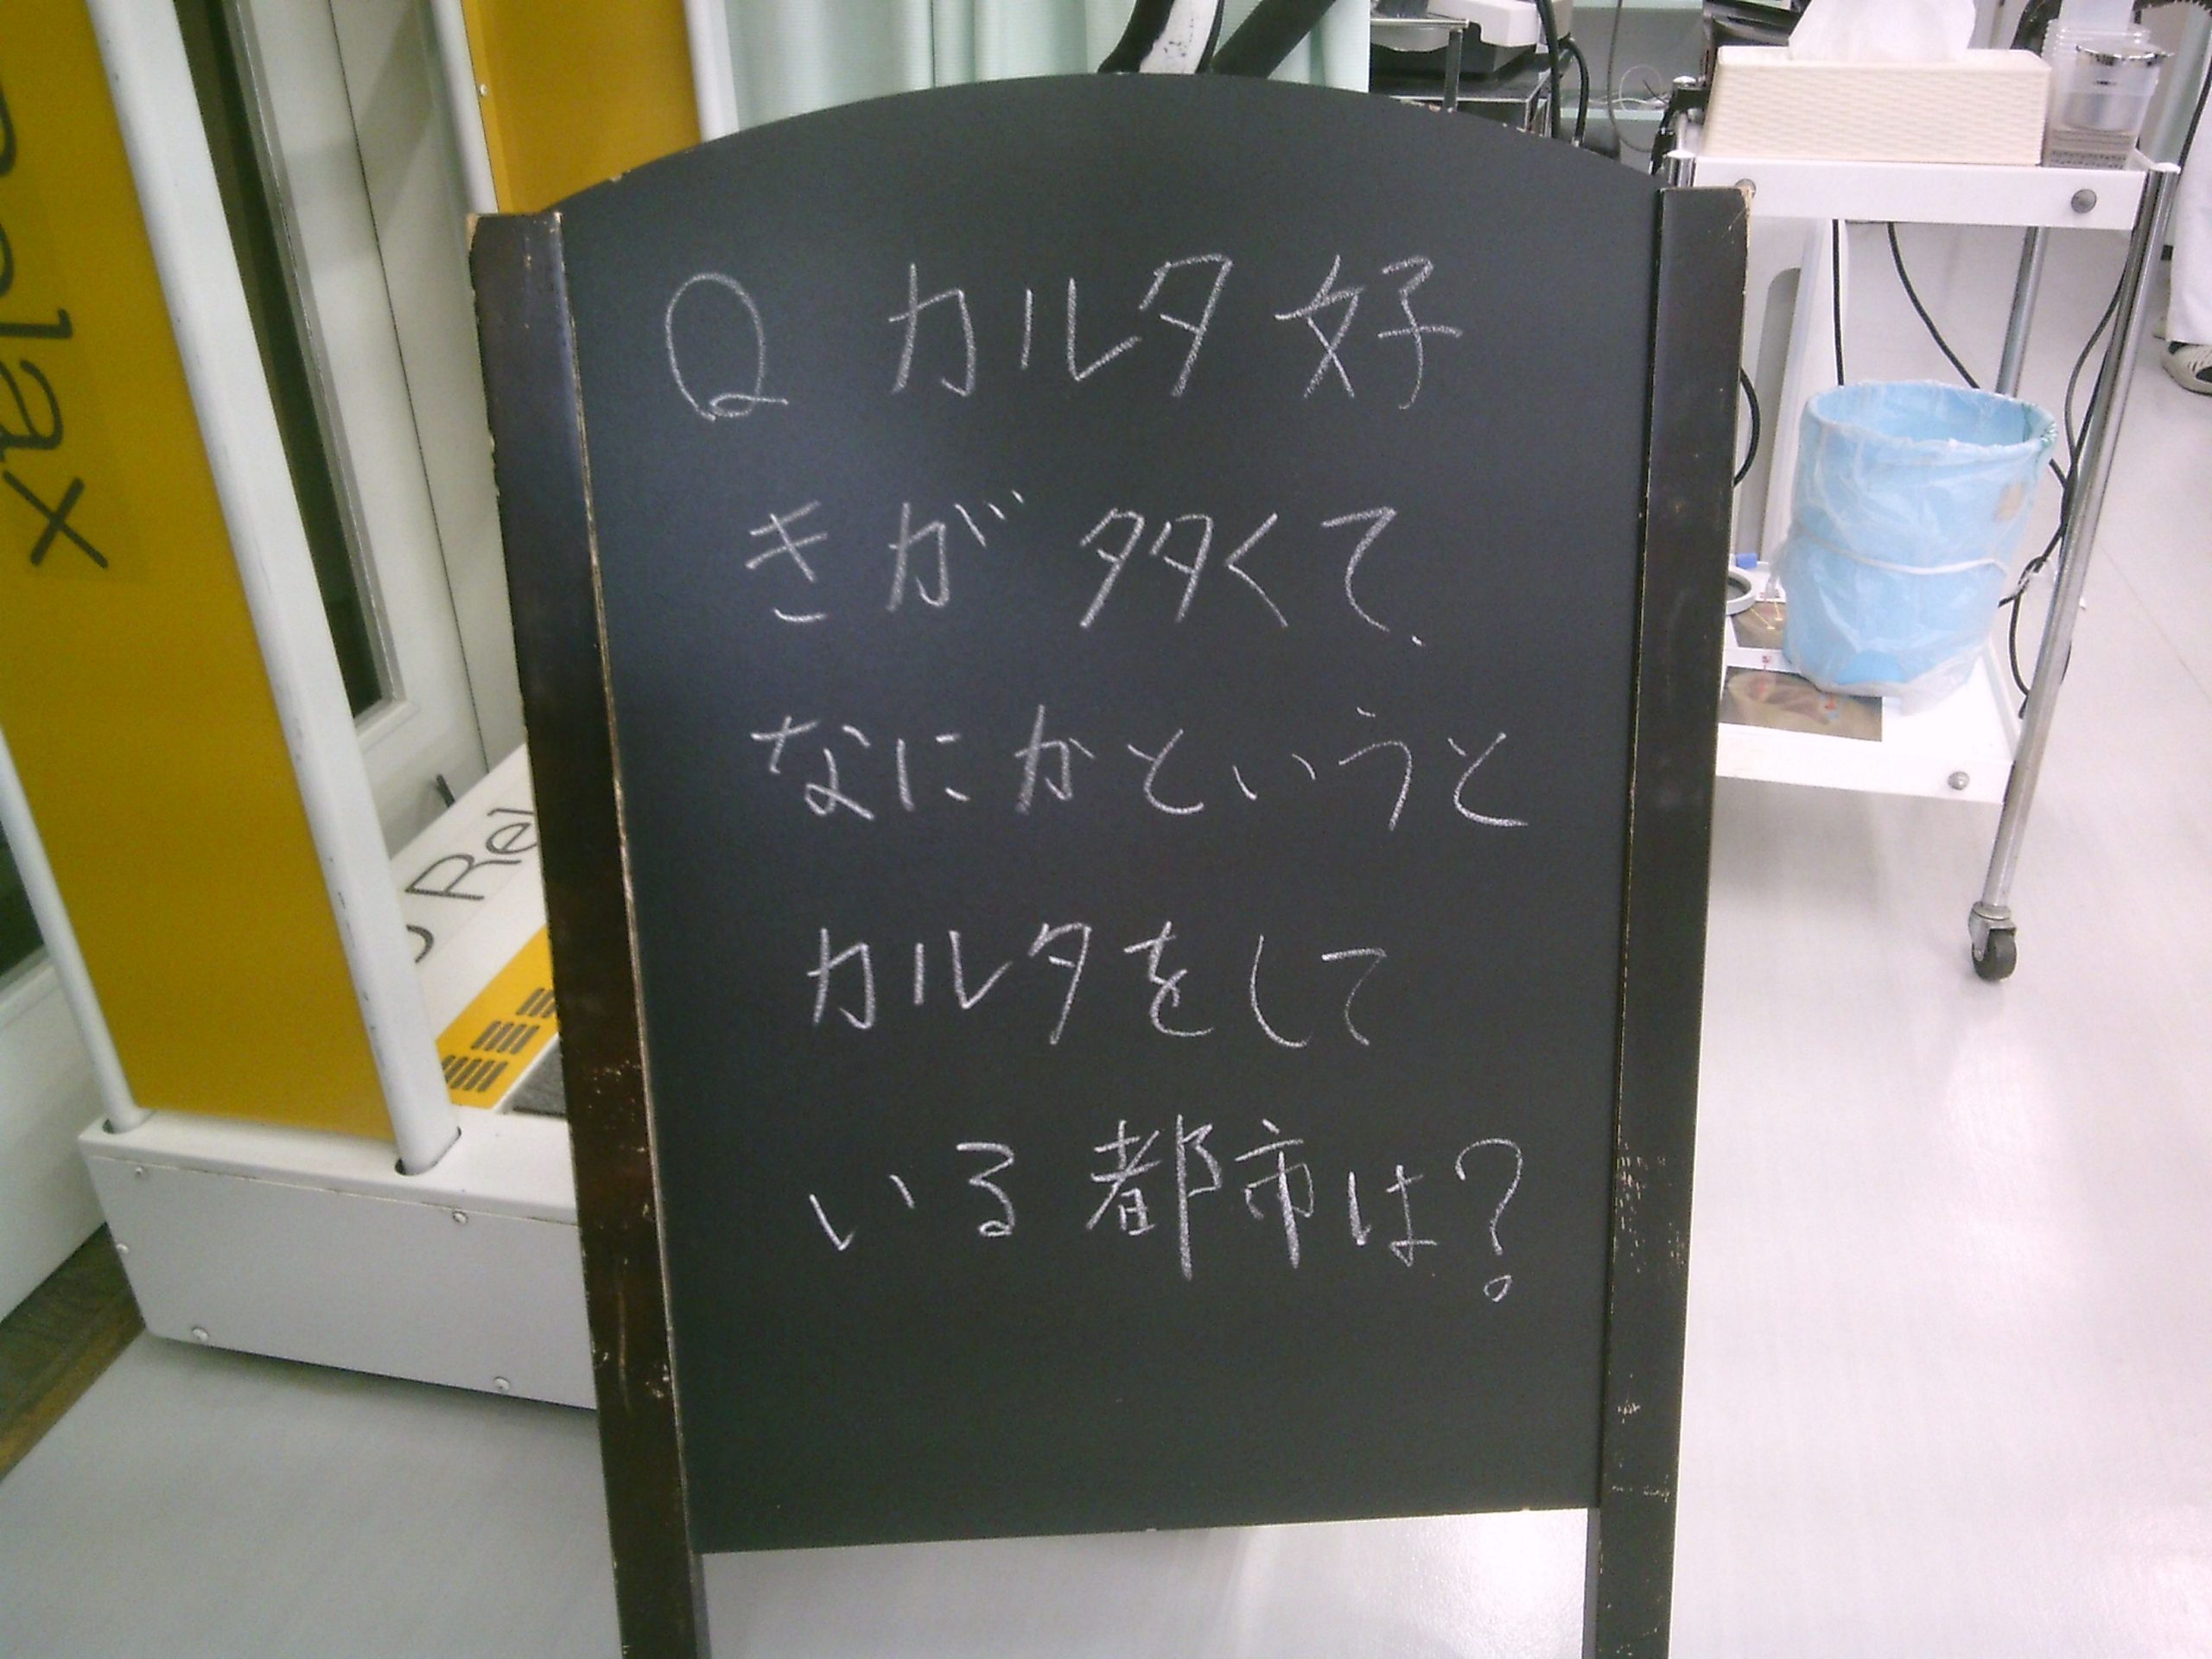 Relax
O Rel
Q カルタ好
きが多くて、
なにかというと
カルタをして
いる都市は?